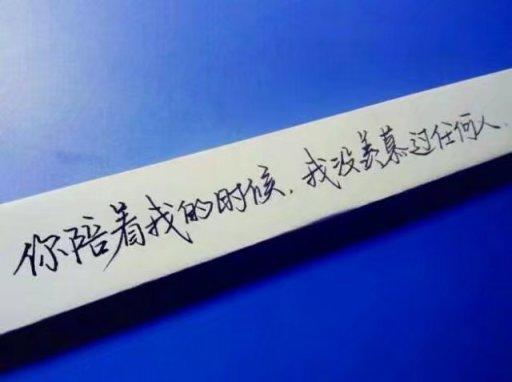 你陪着我的时候.我没羡慕过任何人.